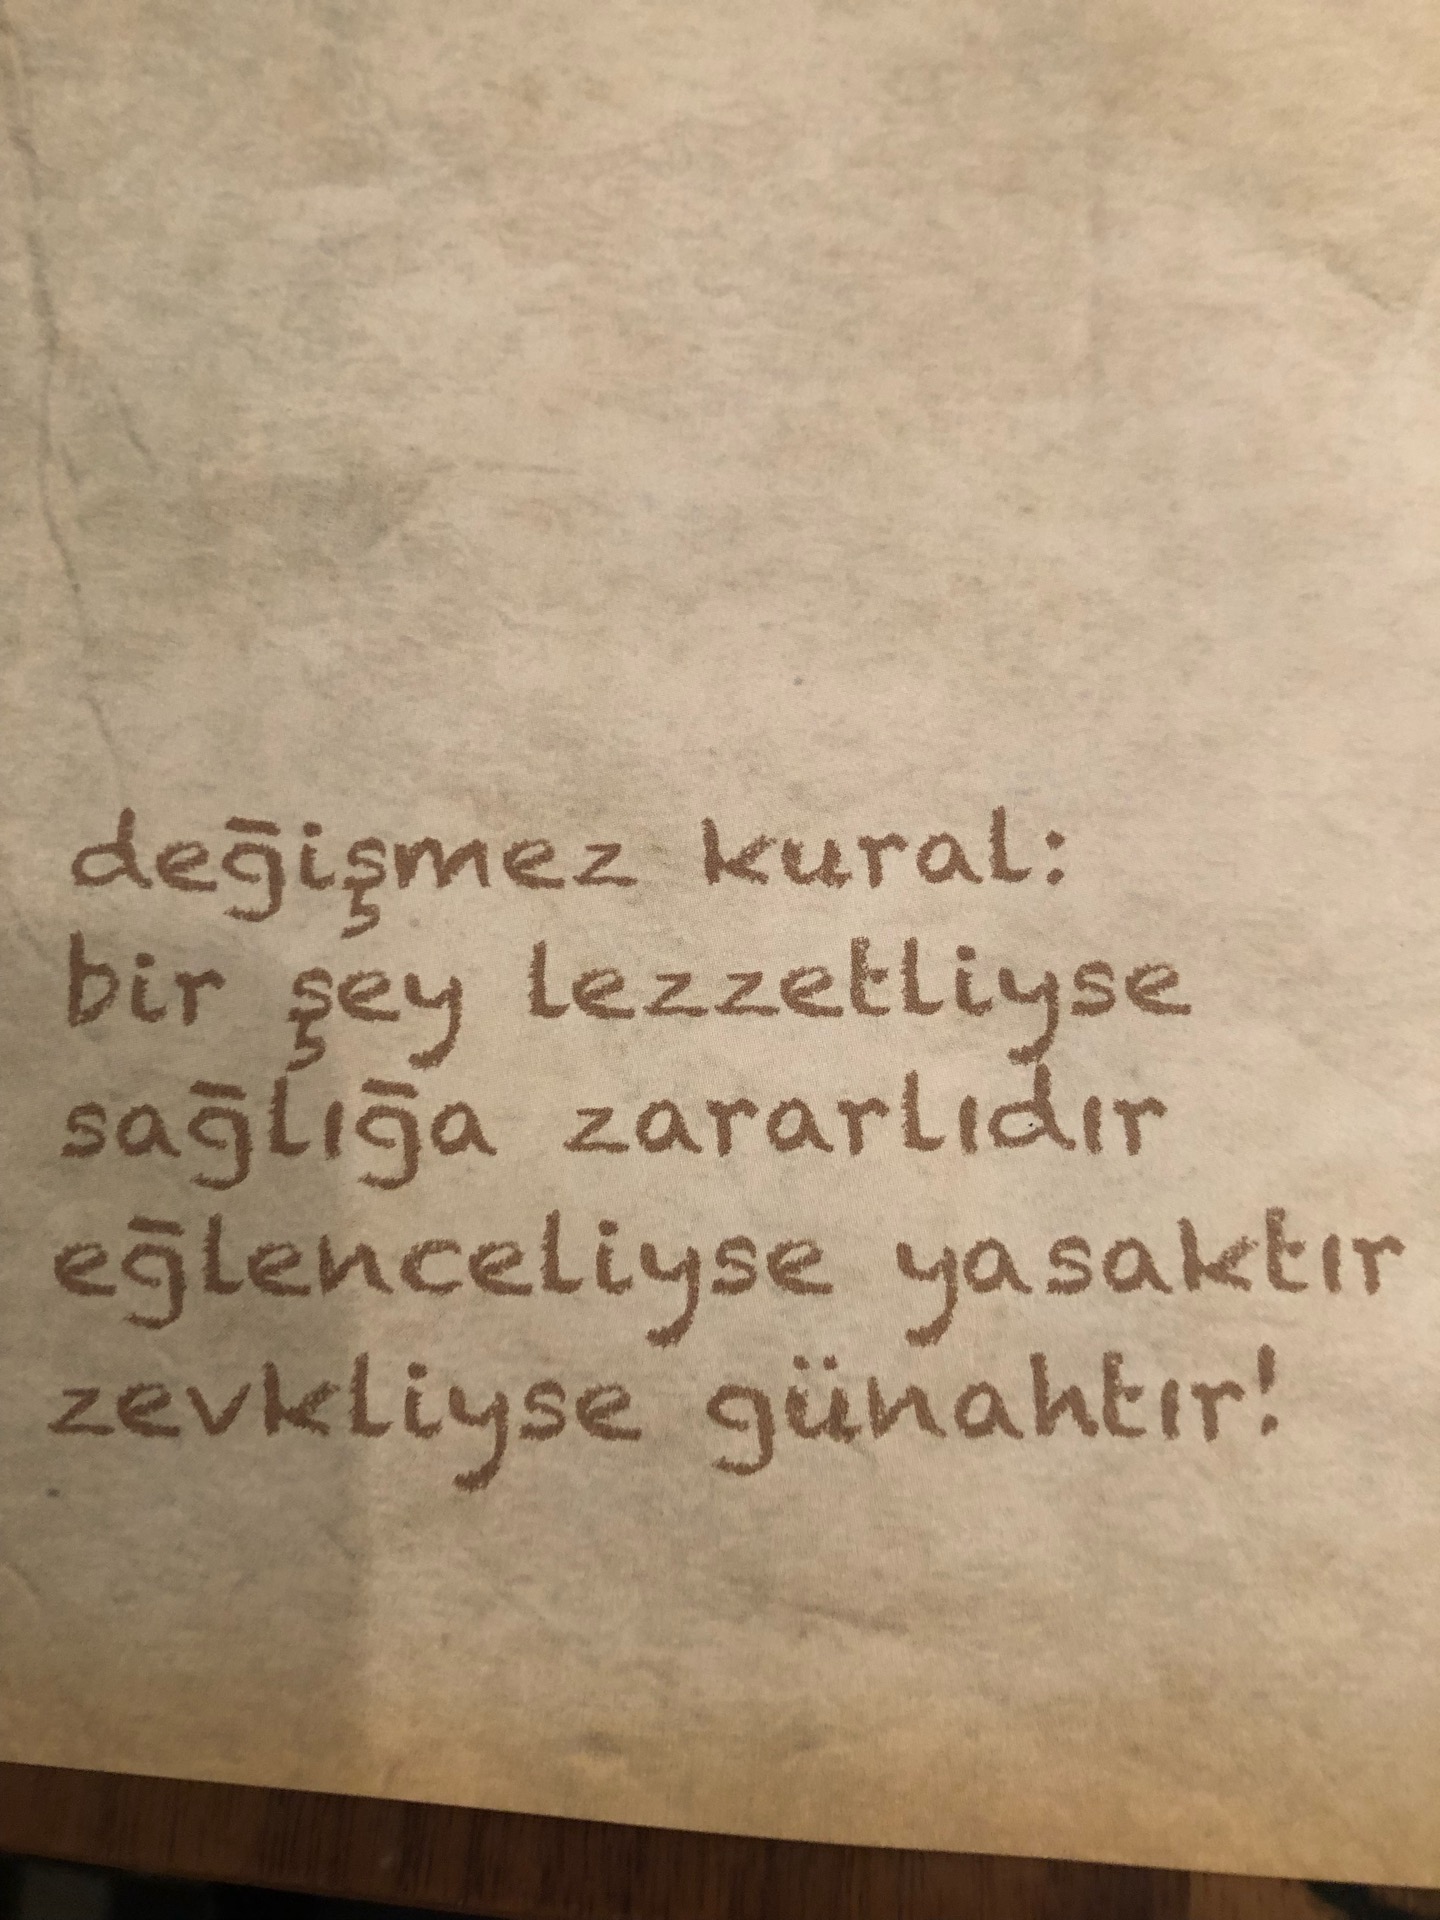 değişmez kural:
bir şey lezzetliyse
sağlığa zararlıdır
eğlenceliyse yasaktır
zevkliyse günahtır!